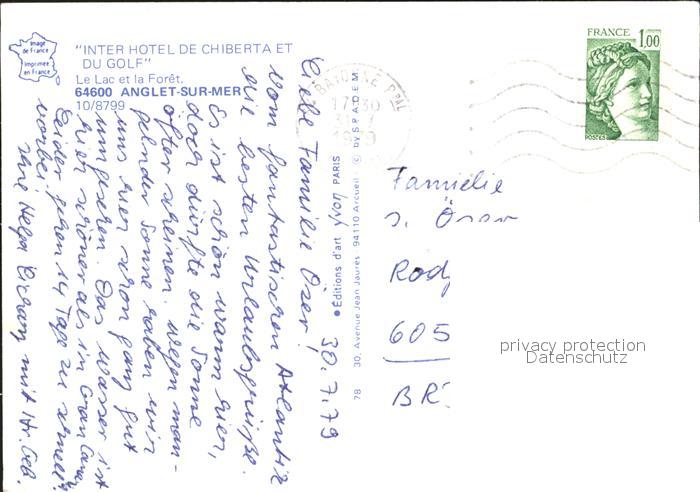 Image
de France
Imprimé
en France
"INTER HOTEL DE CHIBERTA ET
DU GOLF"
Le Lac et la Forêt.
64600 ANGLET-SUR-MER
10/8799
30.7.79
Liebe Familie Öser!
Vom fantastischen Atlantik
die besten Urlaubsgrüße.
Es ist schön warm hier,
doch dürfte die Sonne
öfter scheinen. Wegen man-
gelnder Sonne haben wir
uns hier schon ganz gut
umgesehen. Das Wasser ist
hier schöner als in Gran Canar
Leider gehen 14 Tage zu schnell
vorbei.
Ihre Helga mit
78 30, Avenue Jean Jaures 94110 Arcueil © by S.P.A.D.E.M.
● Editions d'art yvon PARIS
BAYONNE Ppal
17-30
1979
FRANCE
1,00
POSTES
Familie
Öser
Rod
605
BR
privacy protection
Datenschutz